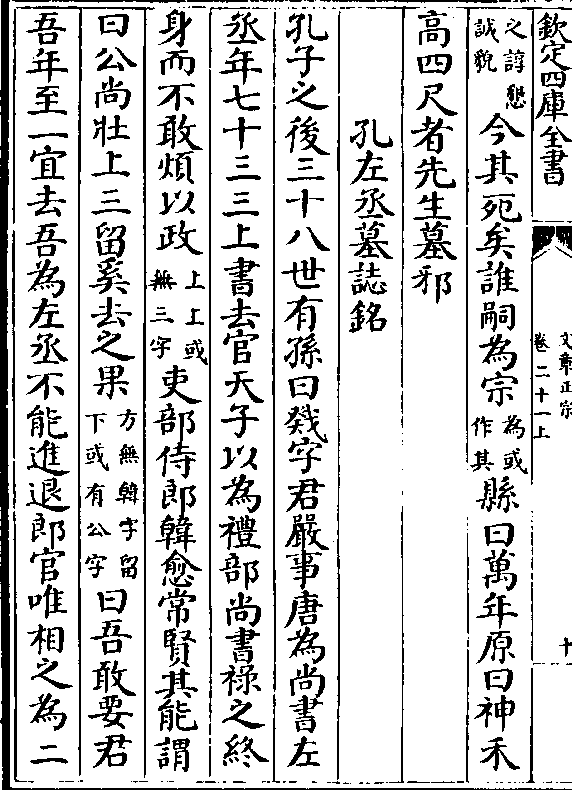 欽定四庫全書
文章正宗
卷二十一上
十
之諄懇誠貌今其死矣誰嗣為宗為或作其縣曰萬年原曰神禾
高四尺者先生墓邪
孔左丞墓誌銘
孔子之後三十八世有孫曰戣字君嚴事唐為尚書左
丞年七十三三上書去官天子以為禮部尚書祿之終
身而不敢煩以政上上或無三字吏部侍郎韓愈常賢其能謂
曰公尚壯上三留奚去之果方無韓字留下或有公字曰吾敢要君
吾年至一宜去吾為左丞不能進退郎官唯相之為二